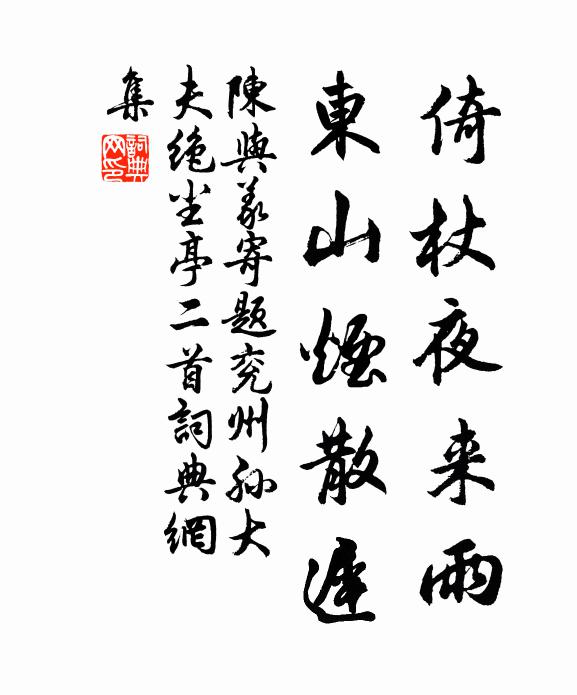 倚杖夜来雨
東山煙散遲
陳與義寄題兖州孙大
夫绝尘亭二首詞典網
集
詞典网印